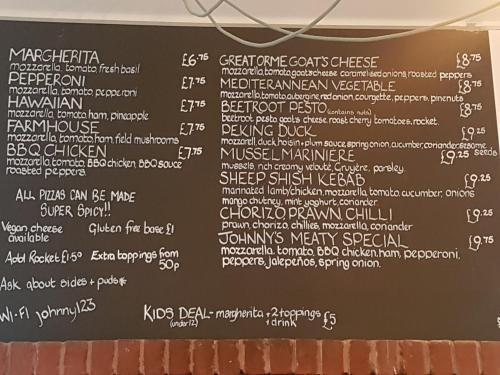 MARGHERITA £6.75
mozzarella, tomato, fresh basil
PEPPERONI £7.75
mozzarella, tomato, pepperoni
HAWAIIAN £7.75
mozzarella, tomato, ham, pineapple
FARMHOUSE £7.75
mozzarella, tomato, ham, field mushrooms
BBQ CHICKEN £7.75
mozzarella, tomato, BBQ chicken, BBQ sauce
roasted peppers.
ALL PIZZAS CAN BE MADE
SUPER SPICY!!
Vegan cheese available
Gluten free base £1
Add Rocket £1.50
Extra toppings from 50p
Ask about sides + puds*
WI-FI johnny123
GREAT ORME GOAT'S CHEESE £8.75
mozzarella, tomato, goats cheese caramelised onions, roasted peppers
MEDITERANNEAN VEGETABLE £8.75
mozzarella, tomato, aubergine, red onion, courgette, peppers, pinenuts
BEETROOT PESTO (contains nuts) £8.75
beetroot pesto, goats cheese, roast cherry tomatoes, rocket.
PEKING DUCK £9.25
mozzarell, duck, hoisin + plum sauce, spring onion, cucumber, coriander, sesame seeds
MUSSEL MARINIERE £9.25
mussels, rich creamy velouté, Gruyére, parsley
SHEEP SHISH KEBAB £9.25
marinated lamb/chicken, mozzarella, tomato, cucumber, onions
mango chutney, mint yoghurt, coriander
CHORIZO PRAWN CHILLI £9.25
prawn, chorizo, chillies, mozzarella, coriander
JOHNNY'S MEATY SPECIAL £9.75
mozzarella, tomato, BBQ chicken, ham, pepperoni,
peppers, jalepeños, spring onion.
KIDS DEAL - margherita + 2 toppings £5
(under 12) + drink